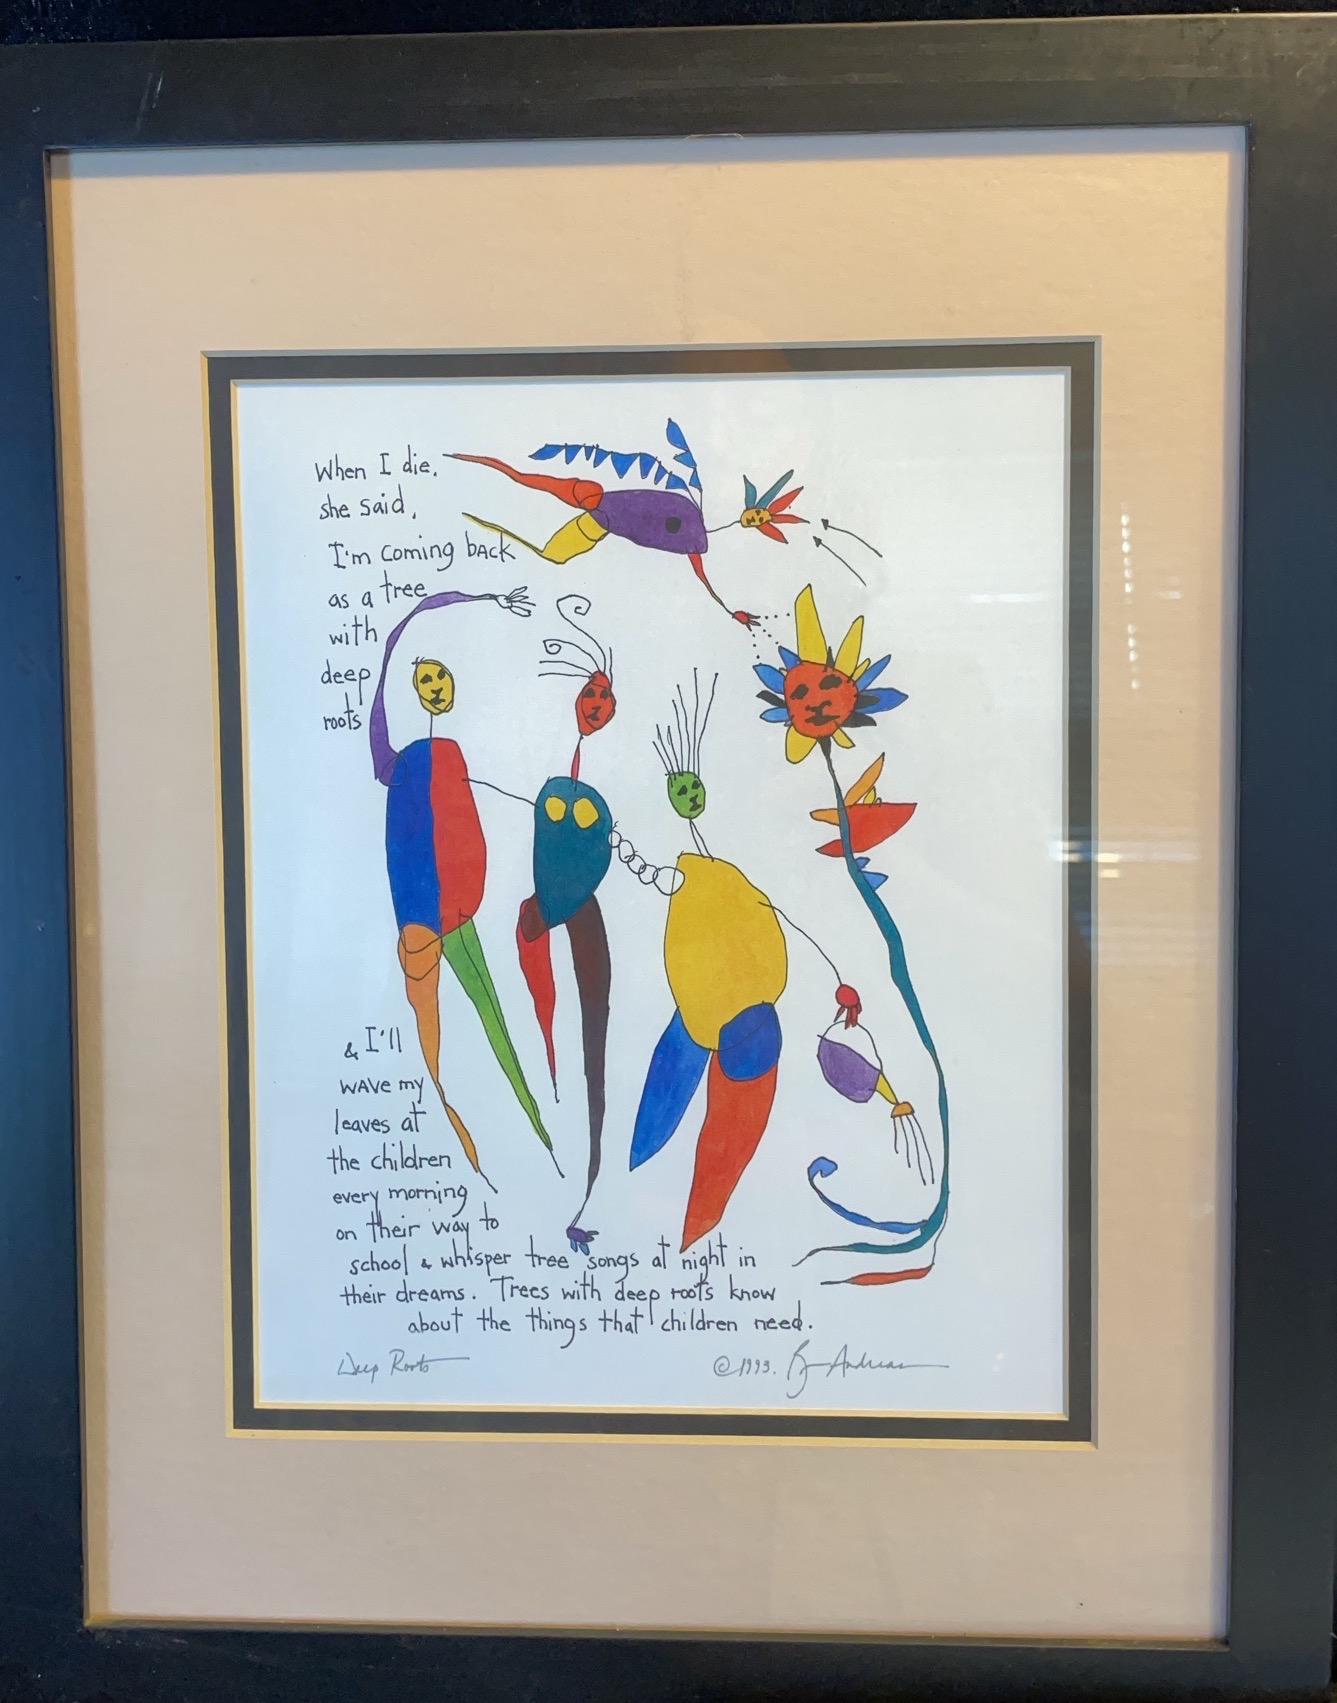 When I die,
she said,
I'm coming back
as a tree
with
deep
roots
& I'll
wave my
leaves at
the children
every morning
on their way to
school & whisper tree songs at night in
their dreams. Trees with deep roots know
about the things that children need.
Deep Roots ©1993. Brian Andreas